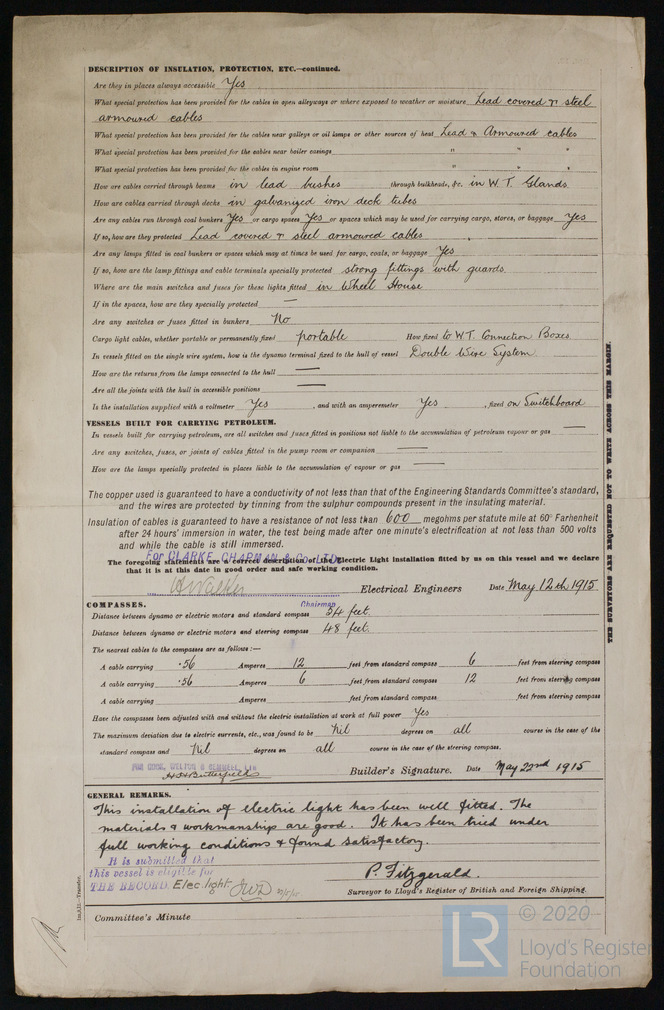 DESCRIPTION OF INSULATION, PROTECTION, ETC.—continued.
Are they in places always accessible Yes
What special protection has been provided for the cables in open alleyways or where exposed to weather or moisture Lead covered & steel
armoured cables
What special protection has been provided for the cables near galleys or oil lamps or other sources of heat Lead & Armoured cables
What special protection has been provided for the cables near boiler casings " " "
What special protection has been provided for the cables in engine room " " "
How are cables carried through beams in lead bushes through bulkheads, &c. in W.T. Glands
How are cables carried through decks in galvanized iron deck tubes
Are any cables run through coal bunkers Yes or cargo spaces Yes or spaces which may be used for carrying cargo, stores, or baggage Yes
If so, how are they protected Lead covered & steel armoured cables
Are any lamps fitted in coal bunkers or spaces which may at times be used for cargo, coals, or baggage Yes
If so, how are the lamp fittings and cable terminals specially protected strong fittings with guards.
Where are the main switches and fuses for these lights fitted in Wheel House
If in the spaces, how are they specially protected —
Are any switches or fuses fitted in bunkers No
Cargo light cables, whether portable or permanently fixed portable How fixed to W.T. Connection Boxes
In vessels fitted on the single wire system, how is the dynamo terminal fixed to the hull of vessel Double Wire System.
How are the returns from the lamps connected to the hull —
Are all the joints with the hull in accessible positions —
Is the installation supplied with a voltmeter Yes , and with an amperemeter Yes , fixed on Switchboard
VESSELS BUILT FOR CARRYING PETROLEUM.
In vessels built for carrying petroleum, are all switches and fuses fitted in positions not liable to the accumulation of petroleum vapour or gas —
Are any switches, fuses, or joints of cables fitted in the pump room or companion —
How are the lamps specially protected in places liable to the accumulation of vapour or gas —
The copper used is guaranteed to have a conductivity of not less than that of the Engineering Standards Committee's standard,
and the wires are protected by tinning from the sulphur compounds present in the insulating material.
Insulation of cables is guaranteed to have a resistance of not less than 600 megohms per statute mile at 60° Farhenheit
after 24 hours' immersion in water, the test being made after one minute's electrification at not less than 500 volts
and while the cable is still immersed.
For CLARKE, CHAPMAN & Co. LTD.
The foregoing statements are a correct description of the Electric Light installation fitted by us on this vessel and we declare
that it is at this date in good order and safe working condition.
Electrical Engineers Date May 12th 1915
Chairman
COMPASSES.
Distance between dynamo or electric motors and standard compass 54 feet.
Distance between dynamo or electric motors and steering compass 48 feet.
The nearest cables to the compasses are as follows:—
A cable carrying .56 Amperes 12 feet from standard compass 6 feet from steering compass
A cable carrying .56 Amperes 6 feet from standard compass 12 feet from steering compass
A cable carrying Amperes feet from standard compass feet from steering compass
Have the compasses been adjusted with and without the electric installation at work at full power Yes
The maximum deviation due to electric currents, etc., was found to be Nil degrees on all course in the case of the
standard compass and Nil degrees on all course in the case of the steering compass.
H. H. Butterfield
Builder's Signature. Date May 22nd 1915
GENERAL REMARKS.
This installation of electric light has been well fitted. The
materials & workmanship are good. It has been tried under
full working conditions & found satisfactory.
It is submitted that
this vessel is eligible for
THE RECORD. Elec. light. JWD
P. Fitzgerald.
Surveyor to Lloyd's Register of British and Foreign Shipping.
Committee's Minute
THE SURVEYORS ARE REQUESTED NOT TO WRITE ACROSS THIS MARGIN.
© 2020
LR
Lloyd's Register
Foundation